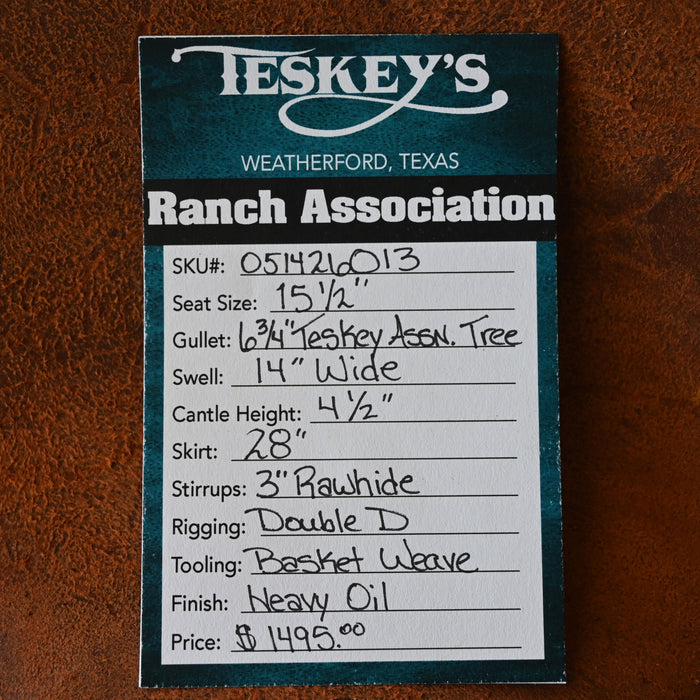 TESKEY'S
WEATHERFORD, TEXAS
Ranch Association
SKU#: 051426013
Seat Size: 15 1/2"
Gullet: 6 3/4" Teskey Assn. Tree
Swell: 14" Wide
Cantle Height: 4 1/2"
Skirt: 28"
Stirrups: 3" Rawhide
Rigging: Double D
Tooling: Basket Weave
Finish: Heavy Oil
Price: $ 1495.00